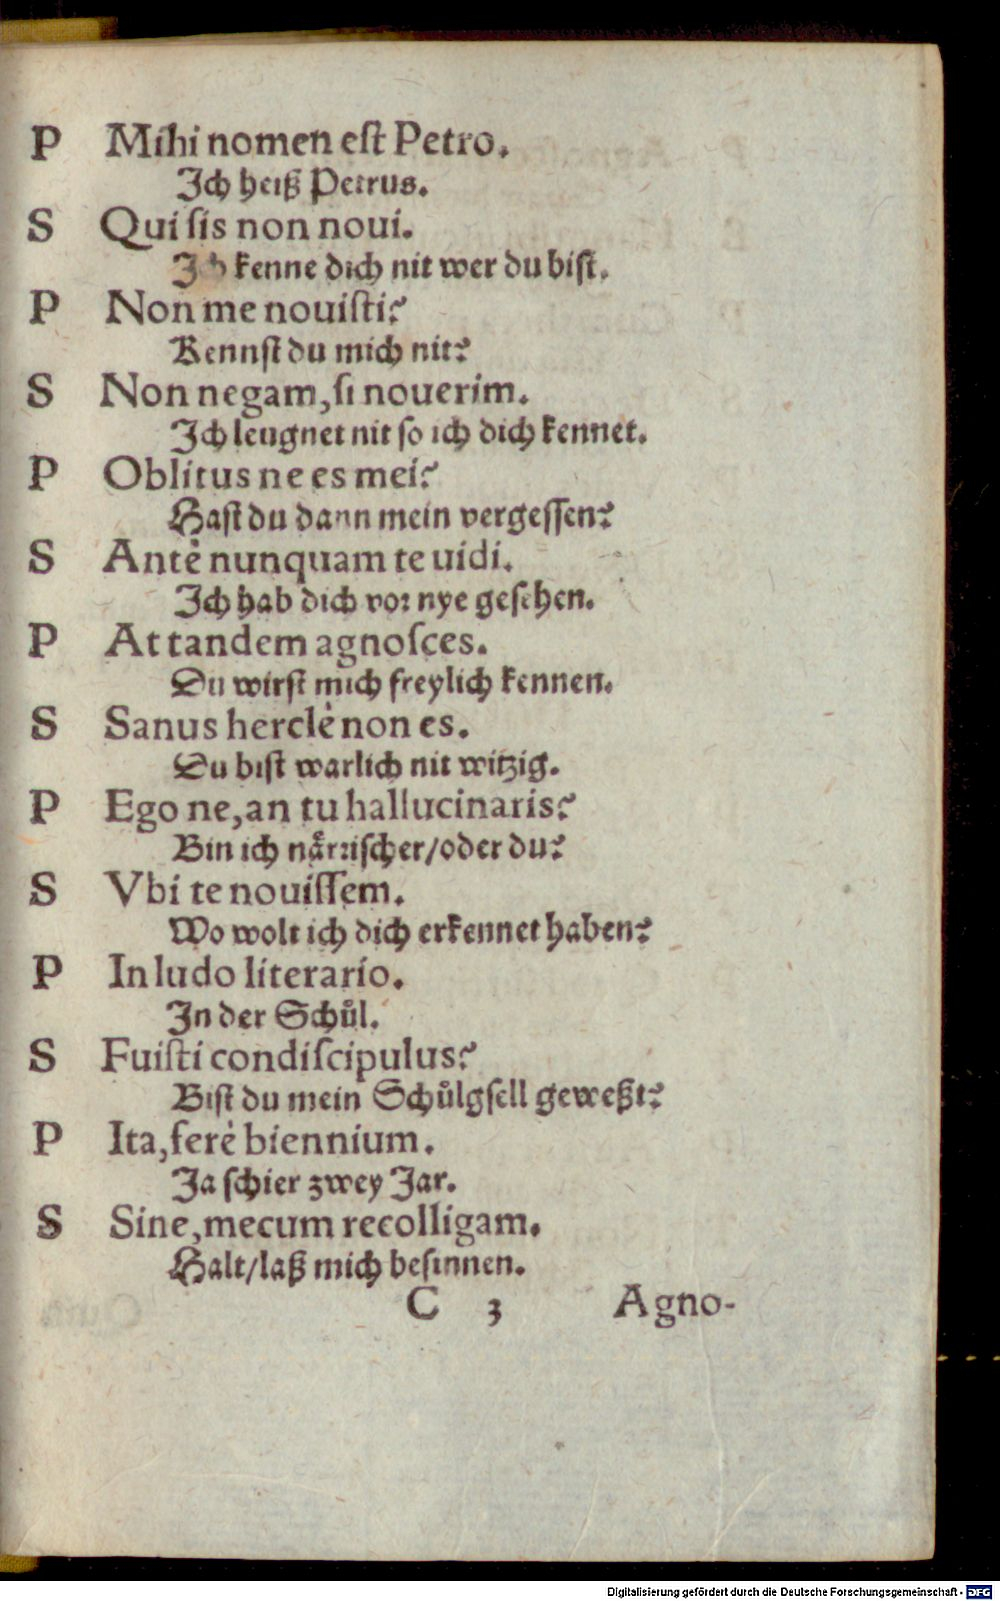 P Mihi nomen est Petro.
Ich heiß Petrus.
S Qui sis non noui.
Ich kenne dich nit wer du bist.
P Non me nouisti?
Kennst du mich nit?
S Non negam, si nouerim.
Ich leugnet nit so ich dich kennet.
P Oblitus ne es mei?
Hast du dann mein vergessen?
S Antè nunquam te uidi.
Ich hab dich vor nye gesehen.
P At tandem agnosces.
Du wirst mich freylich kennen.
S Sanus herclè non es.
Du bist warlich nit witzig.
P Ego ne, an tu hallucinaris?
Bin ich naͤrrischer/oder du?
S Vbi te nouissem.
Wo wolt ich dich erkennet haben?
P In ludo literario.
In der Schůl.
S Fuisti condiscipulus?
Bist du mein Schůlgsell geweßt?
P Ita, ferè biennium.
Ja schier zwey Jar.
S Sine, mecum recolligam.
Halt/laß mich besinnen.
C 3 Agno-
Digitalisierung gefördert durch die Deutsche Forschungsgemeinschaft - DFG